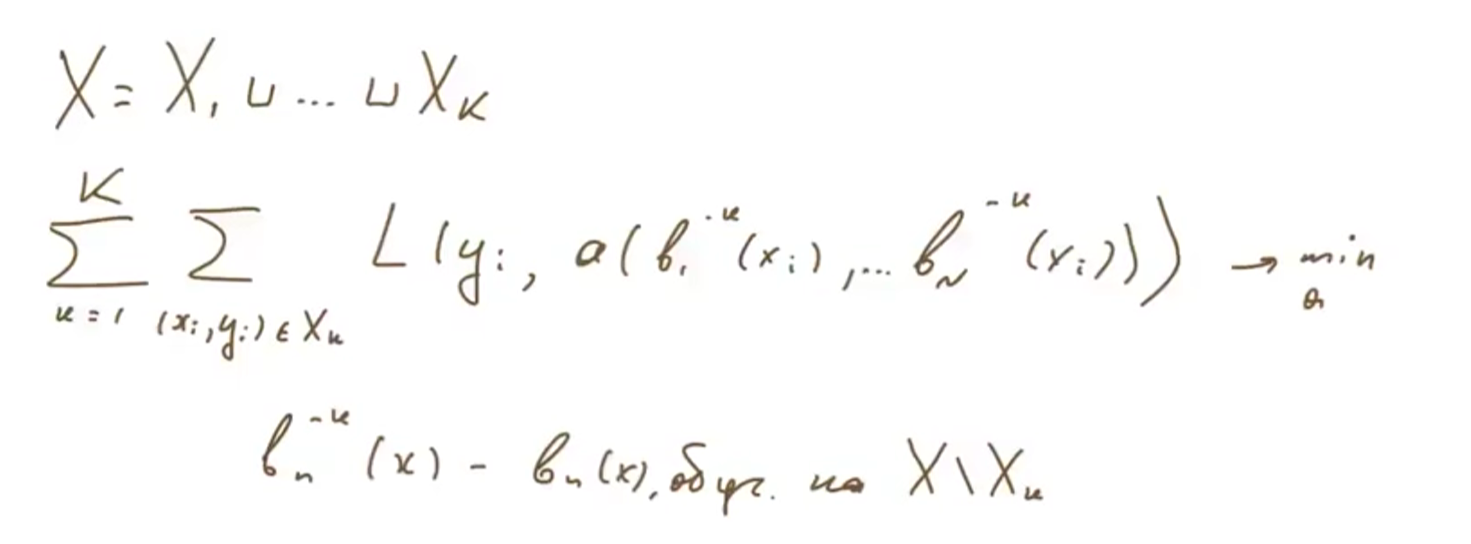 X = X₁ ⊔ ... ⊔ X_K
∑_{k=1}^{K} ∑_{(x_i, y_i) ∈ X_k} L(y_i, a(b_1^{-k}(x_i), ... b_N^{-k}(x_i))) → min_a
b_n^{-k}(x) - b_n(x), обуч. на X \ X_k